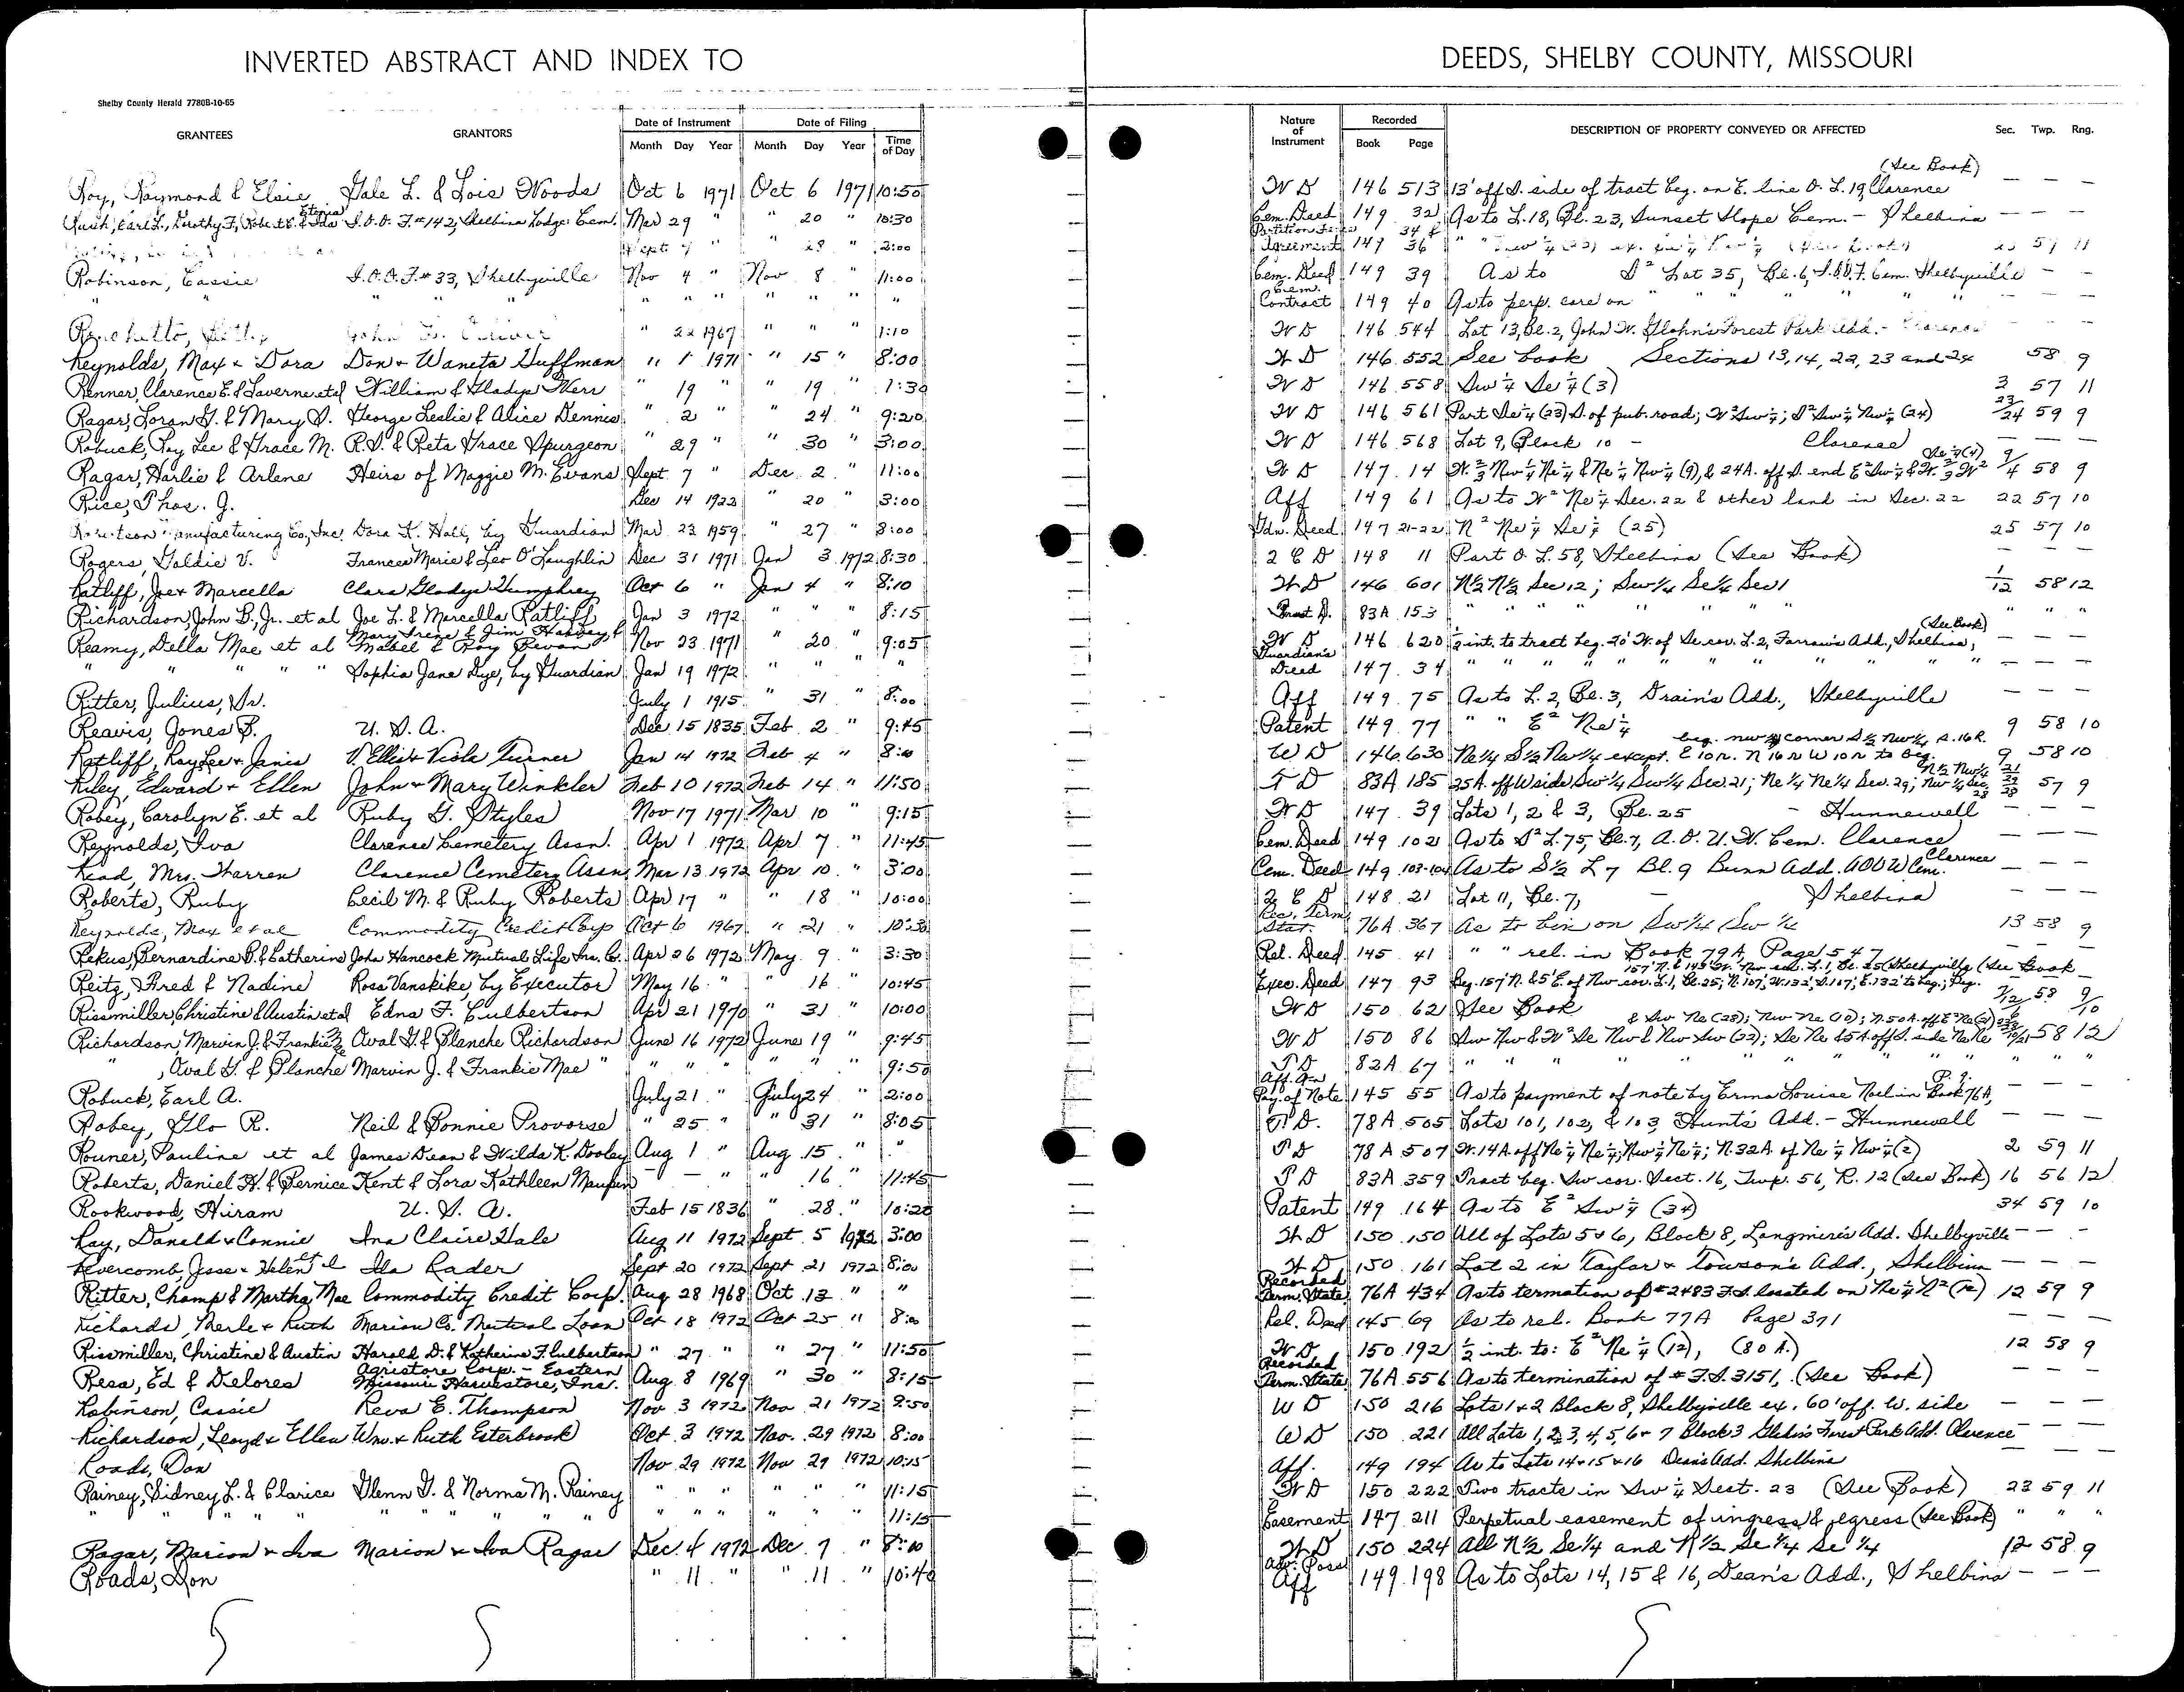 INVERTED ABSTRACT AND INDEX TO DEEDS, SHELBY COUNTY, MISSOURI
Shelby County Herald 7780B-10-65
GRANTEES GRANTORS Date of Instrument Month Day Year Date of Filing Month Day Year Time of Day Nature of Instrument Recorded Book Page DESCRIPTION OF PROPERTY CONVEYED OR AFFECTED Sec. Twp. Rng.
(See Book)
Roy, Raymond & Elsie Gale L. & Lois Woods Oct 6 1971 Oct 6 1971 10:50 W D 146 513 13' off S. side of tract beg. on E. line O. L. 19, Clarence — — —
Rush, Earl L., Dorothy F., Robert E. & Ida I.O.O.F. #142, Shelbina Lodge Cem. Mar 29 " " 20 " 10:30 Cem. Deed 149 32 As to L. 18, Bl. 23, Sunset Slope Cem. - Shelbina — — —
Sept 7 " " 28 " 2:00 Agreement 149 34 & 36 57 11
Robinson, Cassie I.O.O.F. #33, Shelbyville Nov 4 " Nov 8 " 11:00 Cem. Deed 149 39 As to S² Lot 35, Bl. 6, I.O.O.F. Cem. Shelbyville — —
" " " " " " " " " Cem. Contract 149 40 As to perp. care on " " " " "
" 22 1967 " " " 1:10 W D 146 544 Lot 13, Bl. 2, John W. Glahn's Forest Park Add. - Clarence — — —
Reynolds, Max & Dora Don & Waneta Huffman " 1 1971 " 15 " 8:00 W D 146 552 See book Sections 13, 14, 22, 23 and 24 58 9
Renner, Clarence E. & Laverne et al William & Gladys Kerr " 19 " " 19 " 1:30 W D 146 558 Sw ¼ Se ¼ (3) 3 57 11
Ragar, Loran G. & Mary S. George Leslie & Alice Dennis " 2 " " 24 " 9:20 W D 146 561 Part Se ¼ (23) S. of pub. road; W² Sw ¼; S² Sw ¼ Nw ¼ (24) 23/24 59 9
Robuck, Roy Lee & Grace M. R.S. & Reta Grace Spurgeon " 29 " " 30 " 3:00 W D 146 568 Lot 9, Block 10 - Clarence — — —
Ragar, Harlie & Arlene Heirs of Maggie M. Evans Sept 7 " Dec. 2 " 11:00 W D 147 14 W. ⅔ Nw ¼ Ne ¼ & Ne ¼ Nw ¼ (9), & 24A. off S. end E² Sw ¼ & W. ⅔ W² Se ¼ (4) 9/4 58 9
Rice, Thos. J. Dec 14 1922 " 20 " 3:00 Aff 149 61 As to W² Ne ¼ Sec. 22 & other land in Sec. 22 22 57 10
Robertson Manufacturing Co., Inc. Dora K. Hall, by Guardian Mar 23 1959 " 27 " 8:00 Gdn. Deed 147 21-22 N² Ne ¼ Se ¼ (25) 25 57 10
Rogers, Goldie V. Frances Marie & Leo O'Laughlin Dec 31 1971 Jan 3 1972 8:30 2 C D 148 11 Part O L. 58, Shelbina (See Book) — — —
Ratliff, Joe & Marcella Clara Gladys Humphrey Oct 6 " Jan 4 " 8:10 W D 146 601 N½ N½ Sec 12; Sw¼ Se¼ Sec 1 1/12 58 12
Richardson, John B., Jr. et al Joe L. & Marcella Ratliff Jan 3 1972 " " " 8:15 Trust D. 83A 153 " " " " " " " " "
(See Book)
Reamy, Della Mae et al Mary Irene & Jim Harvey, & Mabel & Roy Bevan Nov 23 1971 " 20 " 9:05 W D 146 620 ½ int. to tract beg. 20' W. of Se cor. L. 2, Farrow's Add., Shelbina, — — —
" " " " Sophia Jane Dye, by Guardian Jan 19 1972 " " " " Guardian's Deed 147 34 " " " " " " " " " " " — — —
Ritter, Julius, Sr. July 1 1915 " 31 " 8:00 Aff 149 75 As to L. 2, Bl. 3, Drain's Add., Shelbyville — — —
Reavis, Jones B. U. S. A. Dec 15 1835 Feb 2 " 9:45 Patent 149 77 " " E² Ne ¼ 9 58 10
beg. nw corner S½ Nw¼ S. 16 R.
Ratliff, Ray Lee & Janis V. Ellis & Viola Turner Jan 14 1972 Feb 4 " 8:00 W D 146 630 Ne¼ S½ Nw¼ except. E 10 r. N 16 r W 10 r to beg. 9 58 10
Riley, Edward & Ellen John & Mary Winkler Feb 10 1972 Feb 14 " 11:50 T D 83A 185 25A. off W side Sw¼ Sw¼ Sec. 21; Ne¼ Ne¼ Sec. 29; N½ Nw¼ Nw¼ Sec. 28 57 9
Robey, Carolyn E. et al Ruby G. Styles Nov 17 1971 Mar 10 " 9:15 W D 147 39 Lots 1, 2 & 3, Bl. 25 - Hunnewell — — —
Reynolds, Iva Clarence Cemetery Assn. Apr 1 1972 Apr 7 " 11:45 Cem. Deed 149 102 As to S² L. 75, Bl. 7, A. O. U. W. Cem. Clarence — — —
Read, Mrs. Warren Clarence Cemetery Assn. Mar 13 1972 Apr 10 " 3:00 Cem. Deed 149 103-104 As to S½ L 7 Bl. 9 Bunn Add. AOUW Cem. Clarence — —
Roberts, Ruby Cecil M. & Ruby Roberts Apr 17 " " 18 " 10:00 2 C D 148 21 Lot 11, Bl. 7, - Shelbina — — —
Reynolds, Max et al Commodity Credit Corp Oct 6 1967 " 21 " 10:30 Rec. Term. Stat. 76A 367 As to bin on Sw¼ Sw¼ 13 58 9
Rekus, Bernardine B. & Catherine John Hancock Mutual Life Ins. Co. Apr 26 1972 May 9 " 3:30 Rel. Deed 145 41 " " rel. in Book 79A, Page 547
Reitz, Fred & Nadine Rosa Vanskike, by Executor May 16 " " 16 " 10:45 Exec. Deed 147 93 Beg. 157' N. & 5' E. of Nw cor. L. 1, Bl. 25; N. 107', W. 132', S. 107', E. 132' to beg.; Beg. 157' N. & 143' W. Nw cor. L. 1, Bl. 25 (Shelbyville) (See Book —
Rissmiller, Christine & Austin et al Edna F. Culbertson Apr 21 1970 " 31 " 10:00 W D 150 621 See Book 7/12 58 9/10
Richardson, Marvin J. & Frankie Mae Oval G. & Blanche Richardson June 16 1972 June 19 " 9:45 W D 150 86 Sw Nw & W² Se Nw & Nw Sw (22); Se Ne & 5 A. off S. side Ne Ne & Sw Ne (28); Nw Ne (10); N. 50A. off E² Ne 58 12
" , Oval G. & Blanche Marvin J. & Frankie Mae " " " " " " " 9:50 T D 82A 67 " " " " " " " " " "
Robuck, Earl A. July 21 " July 24 " 2:00 Aff. on Pay. of Note 145 55 As to payment of note by Erma Louise Noel in Book 76A, P. 9. — — —
Robey, Glo R. Neil & Bonnie Provorse " 25 " " 31 " 8:05 T. D. 78A 505 Lots 101, 102, & 103, Hunt's Add. - Hunnewell — — —
Rouner, Pauline et al James Dean & Wilda K. Dooley Aug 1 " Aug. 15 " " T D 78A 507 W. 14A. off Ne ¼ Ne ¼; Nw ¼ Ne ¼; N. 32A. of Ne ¼ Nw ¼ (2) 2 59 11
Roberts, Daniel H. & Bernice Kent & Lora Kathleen Maupin — — " " 16 " 11:45 T D 83A 359 Tract beg. Sw cor. Sect. 16, Twp. 56, R. 12 (See Book) 16 56 12
Rookwood, Hiram U. S. A. Feb 15 1836 " 28 " 10:20 Patent 149 164 As to E² Sw ¼ (34) 34 59 10
Ray, Donald & Connie Ina Claire Hale Aug 11 1972 Sept 5 1972 3:00 W D 150 150 All of Lots 5 & 6, Block 8, Langmire's Add. Shelbyville — — -
Revercomb, Jesse & Helen et al Ila Rader Sept 20 1972 Sept 21 1972 8:00 W D 150 161 Lot 2 in Taylor & Towson's Add., Shelbina — — —
Ritter, Champ & Martha Mae Commodity Credit Corp. Aug 28 1968 Oct 13 " " Recorded Term. State. 76A 434 As to termation of #2483 F.S. located on Ne ¼ N² (12) 12 59 9
Richards, Merle & Ruth Marion Co. Mutual Loan Oct 18 1972 Oct 25 " 8:00 Rel. Deed 145 69 As to rel. Book 77A Page 371 — — —
Rissmiller, Christine & Austin Harold D. & Katherine F. Culbertson " 27 " " 27 " 11:50 W D 150 192 ½ int. to: E² Ne ¼ (12), (80 A.) 12 58 9
Ress, Ed & Delores Agristore Corp. - Eastern Missouri Harvestore, Inc. Aug. 8 1969 " 30 " 8:15 Recorded Term. State. 76A 556 As to termination of # F.S. 3151, (See Book) — — —
Robinson, Cassie Reva E. Thompson Nov 3 1972 Nov 21 1972 9:50 W D 150 216 Lots 1 & 2 Block 8, Shelbyville ex. 60' off W. side — — —
Richardson, Lloyd & Ellen Wm. & Ruth Esterbrook Oct 3 1972 Nov. 29 1972 8:00 W D 150 221 All Lots 1, 2, 3, 4, 5, 6 & 7 Block 3 Glahn's Forest Park Add. Clarence — — —
Roads, Don Nov 29 1972 Nov 29 1972 10:15 Aff. 149 194 As to Lots 14 & 15 & 16 Dean's Add. Shelbina — — —
Rainey, Sidney L. & Clarice Glenn G. & Norma M. Rainey " " " " " " 11:15 W D 150 222 Two tracts in Sw ¼ Sect. 23 (See Book) 23 59 11
" " " " " " " " " " " " " 11:15 Easement 147 211 Perpetual easement of ingress & egress (See Book) " " "
Ragar, Marion & Iva Marion & Iva Ragar Dec. 4 1972 Dec. 7 " 8:10 W D 150 224 All N½ Se¼ and N½ Se¼ Se¼ 12 58 9
Roads, Don " 11 " " 11 " 10:40 Adv. Poss. Aff 149 198 As to Lots 14, 15 & 16, Dean's Add., Shelbina — — —